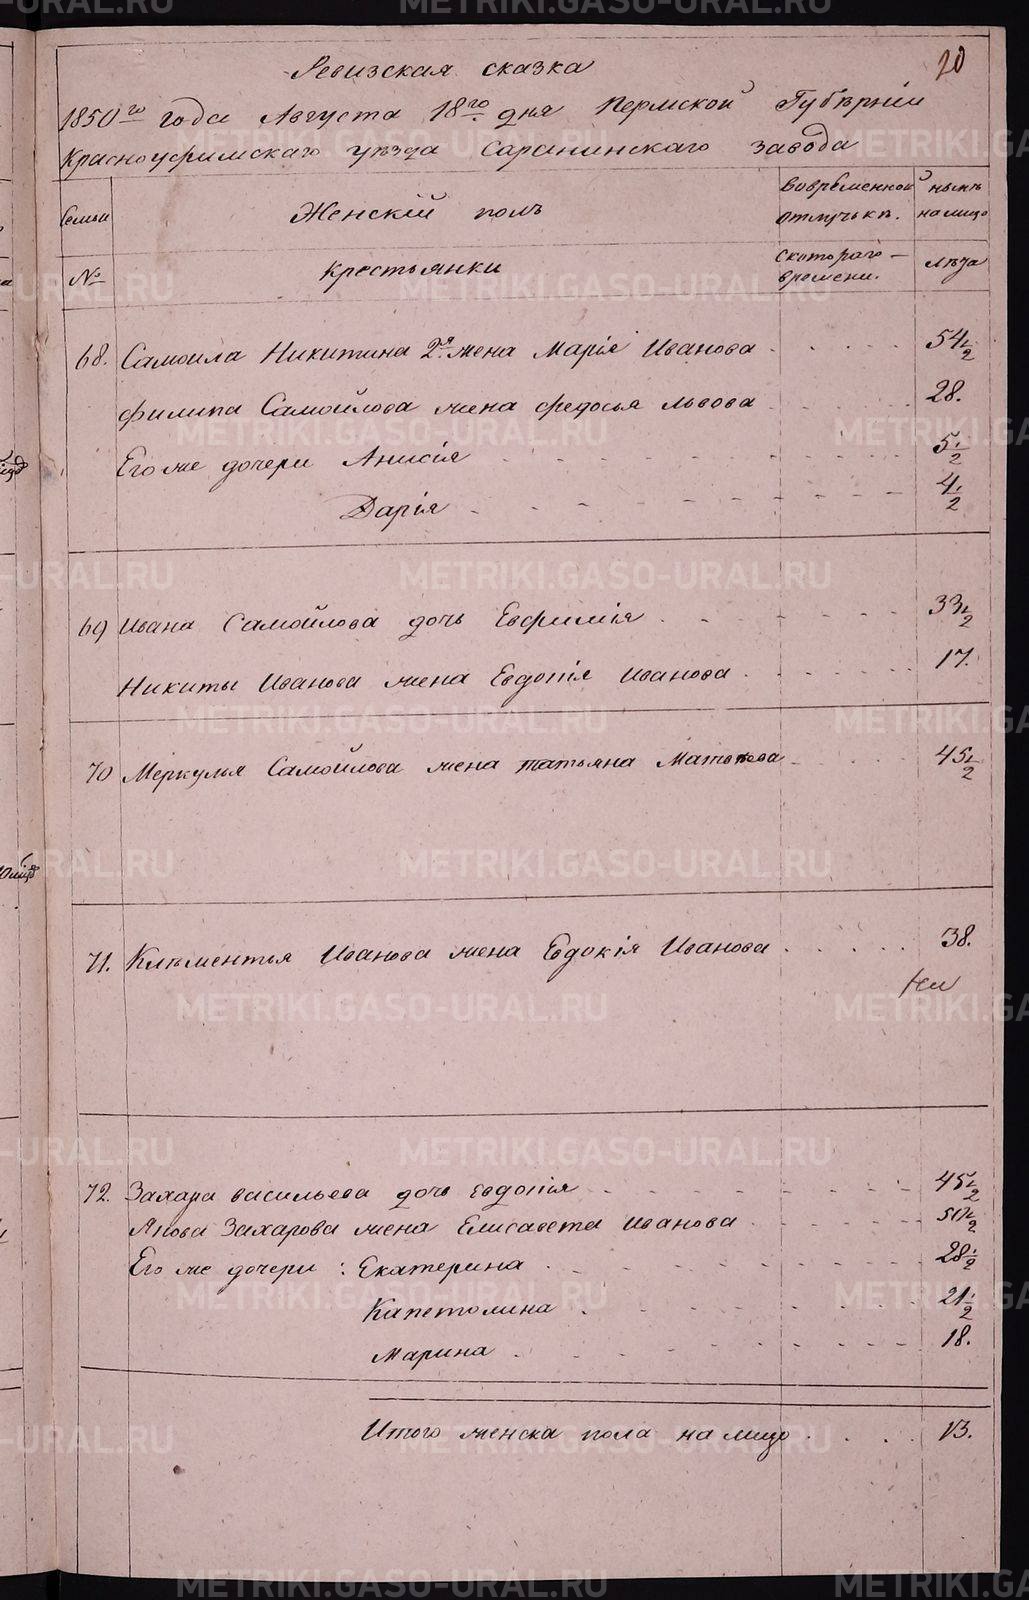 20
Ревизская сказка
1850го года Августа 18го дня Пермской Губѣрнiи
Красноуфимскаго уѣзда Саранинскаго завода
Семьи
Женскiй полъ
вовремѣнной отлучькѣ.
нынѣ на лицо
№
Крестьянки
скотораго времени.
лѣта
68. Самоила Никитина 2я жена Марiя Иванова 54 1/2
Филипа Самойлова жена Федосья Львова 28.
Его же дочери Анисiя 5 1/2
Дарiя 4 1/2
69 Ивана Самойлова дочь Евфимiя 33 1/2
Никиты Иванова жена Евдотiя Иванова 17.
70 Меркулья Самойлова жена татьяна Матвѣева 45 1/2
71. Клѣментья Иванова жена Евдокiя Иванова 38.
72. Захара васильева дочь Евдотiя 45 1/2
Якова Захарова жена Елисавета Иванова 50 1/2
Его же дочери: Екатерина 28 1/2
Капетолина 21 1/2
Марина 18.
Итого женска пола на лицо 13.
METRIKI.GASO-URAL.RU